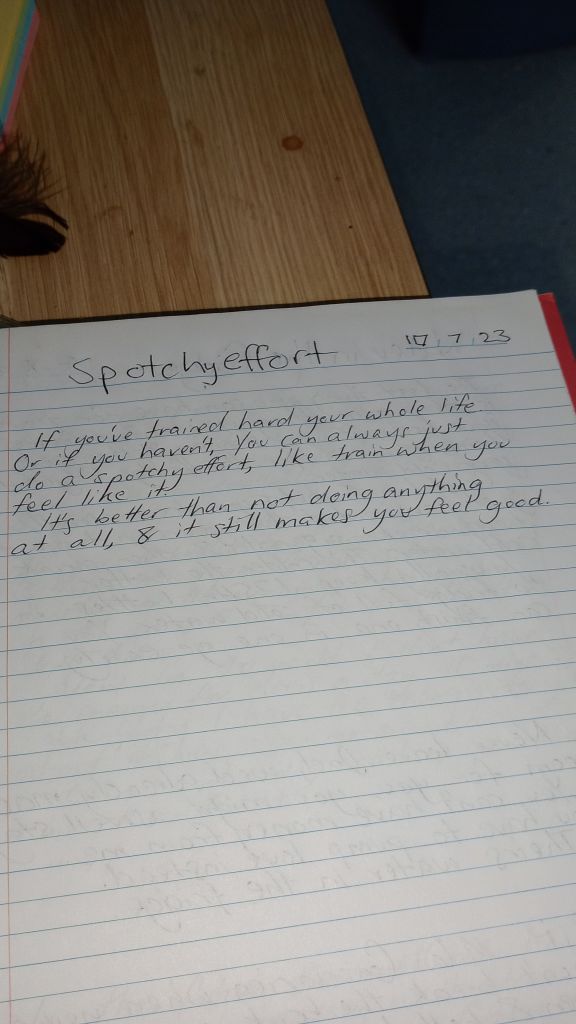 Spotchy effort
10, 7, 23
If you've trained hard your whole life
Or if you haven't, You can always just
do a spotchy effort, like train when you
feel like it.
It's better than not doing anything
at all, & it still makes you feel good.